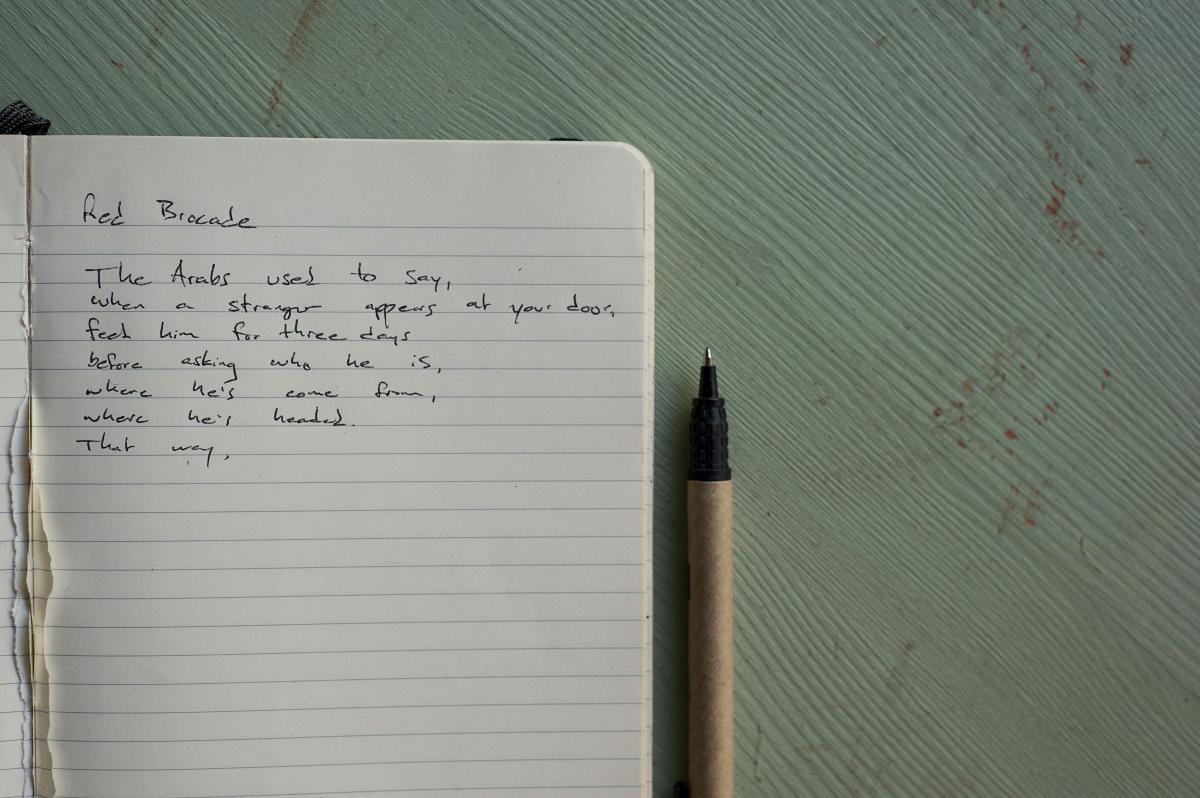 Red Brocade
The Arabs used to say,
when a stranger appears at your door,
feed him for three days
before asking who he is,
where he's come from,
where he's headed.
That way,